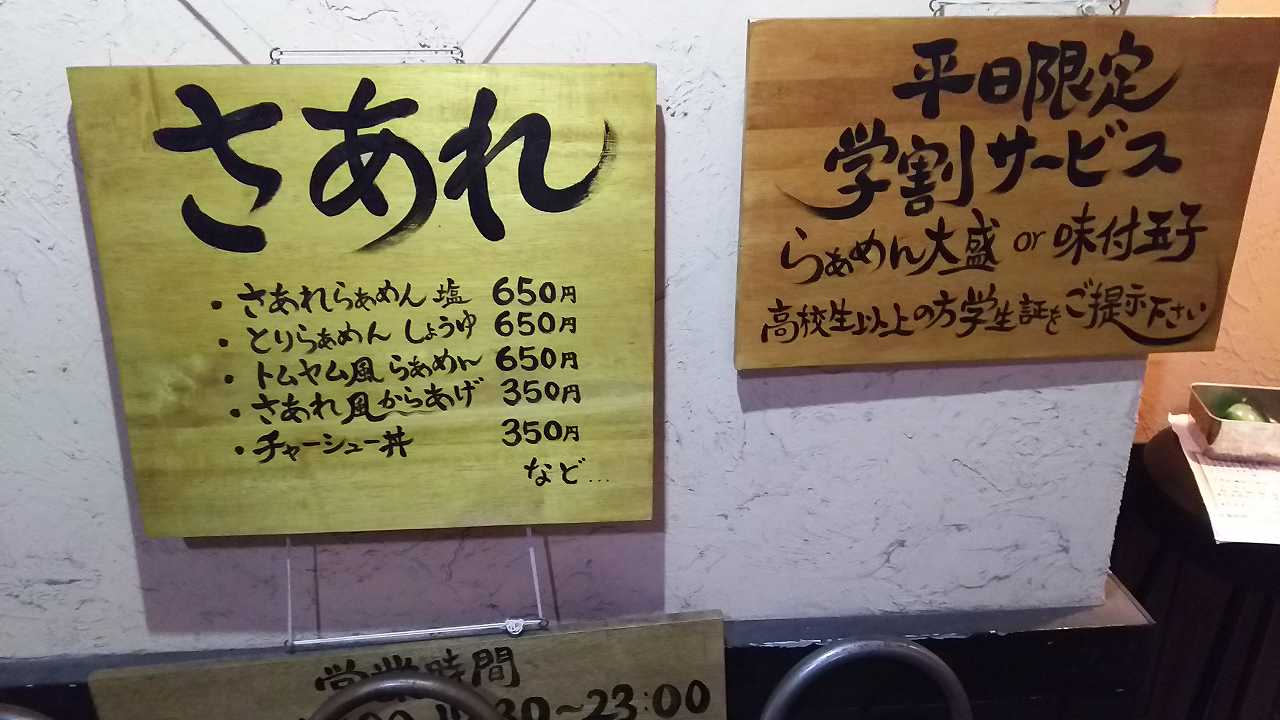 さあれ
・さあれらぁめん 塩 650円
・とりらぁめん しょうゆ 650円
・トムヤム風らぁめん 650円
・さあれ風からあげ 350円
・チャーシュー丼 350円
など...
平日限定
学割サービス
らぁめん大盛 or 味付玉子
高校生以上の方学生証をご提示下さい
営業時間
30～23:00